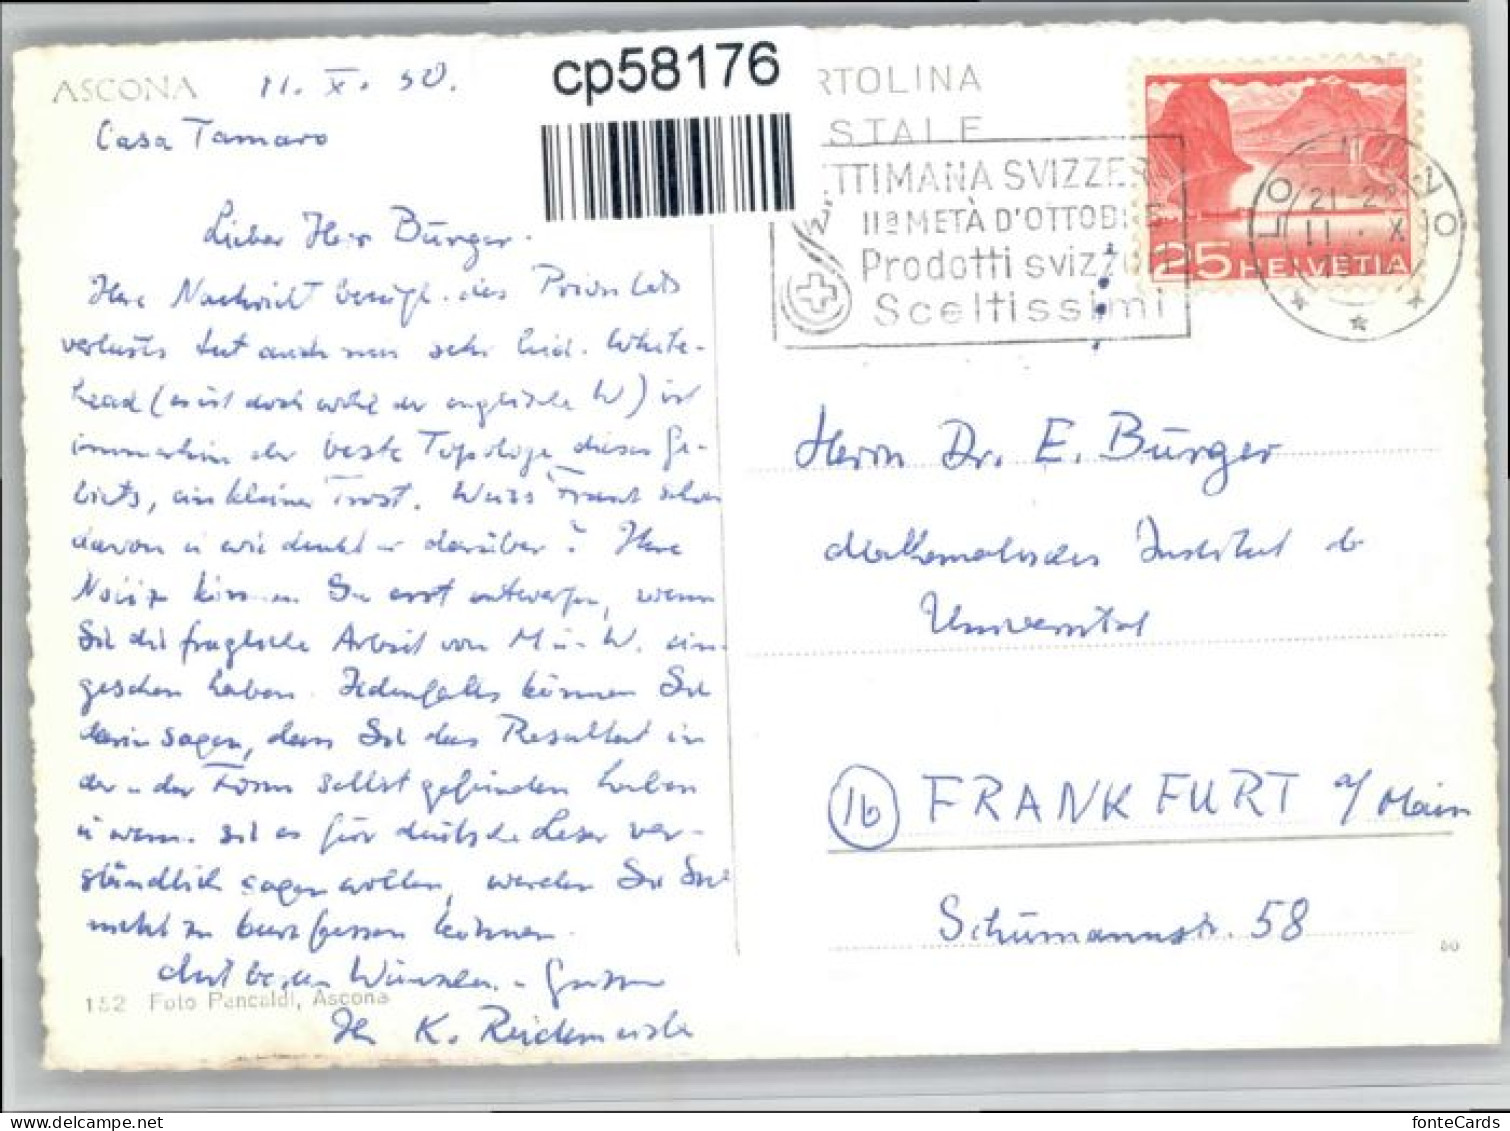 ASCONA 11. X. 50.
Casa Tamaro
Lieber Herr Burger.
Ihre Nachricht bezügl. des Prioritäts
verlusts tut auch mir sehr leid. White-
head (es ist doch wohl der englische W) ist
immerhin der beste Topologe dieses Ge-
biets, ein kleiner Trost. Weiss Franz schon
davon u wie denkt er darüber? Ihre
Notiz können Sie erst entwerfen, wenn
Sie die fragliche Arbeit von M u. W. ein-
gesehen haben. Jedenfalls können Sie
darin sagen, dass Sie das Resultat in
der u. der Form selbst gefunden haben
u wenn Sie es für deutsche Leser ver-
ständlich sagen wollen, werden Sie Sich
nicht zu kurz fassen können.
Mit besten Wünschen u. Grüssen
Ihr K. Reidemeister
152 Foto Pancaldi, Ascona
cp58176
RTOLINA
STALE
TTIMANA SVIZZERA
IIª METÀ D'OTTOBRE
Prodotti svizzeri
Sceltissimi
25 HELVETIA
LOCARNO
21-22
11. X
Herrn Dr. E. Burger
Mathematisches Institut d
Universität
16 FRANKFURT a/Main
Schumannstr. 58
60
fonteCards